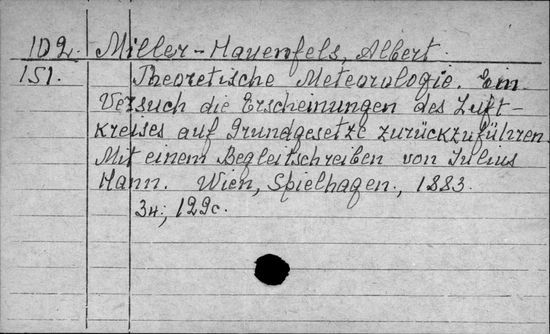 102. Miller-Hauenfels, Albert.
151. Theoretische Meteorologie. Ein
Versuch die Erscheinungen des Luft-
kreises auf Grundgesetze zurückzuführen.
Mit einem Begleitschreiben von Julius
Hann. Wien, Spielhagen., 1883.
3н; 129с.